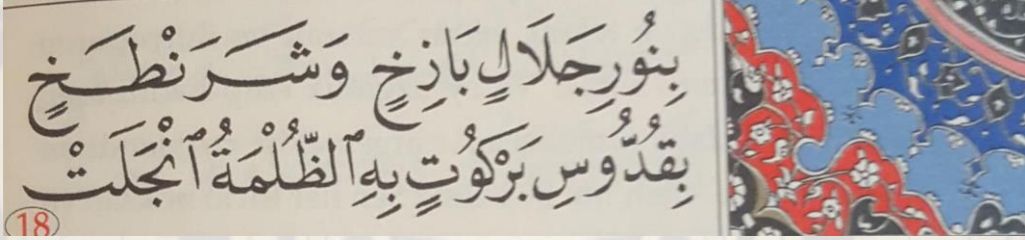 بِنُورِ جَلَالٍ بَازِخٍ وَشَرَنْطَخٍ
بِقُدُّوسِ بَرْكُوتٍ بِهِ ٱلظُّلْمَةُ ٱنْجَلَتْ
18